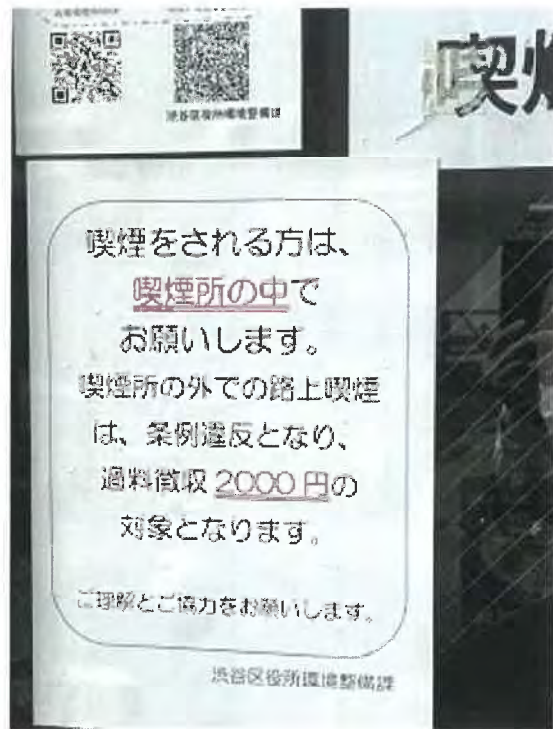 渋谷区役所環境整備課
喫煙をされる方は、
喫煙所の中で
お願いします。
喫煙所の外での路上喫煙
は、条例違反となり、
過料徴収2000円の
対象となります。
ご理解とご協力をお願いします。
渋谷区役所環境整備課
喫